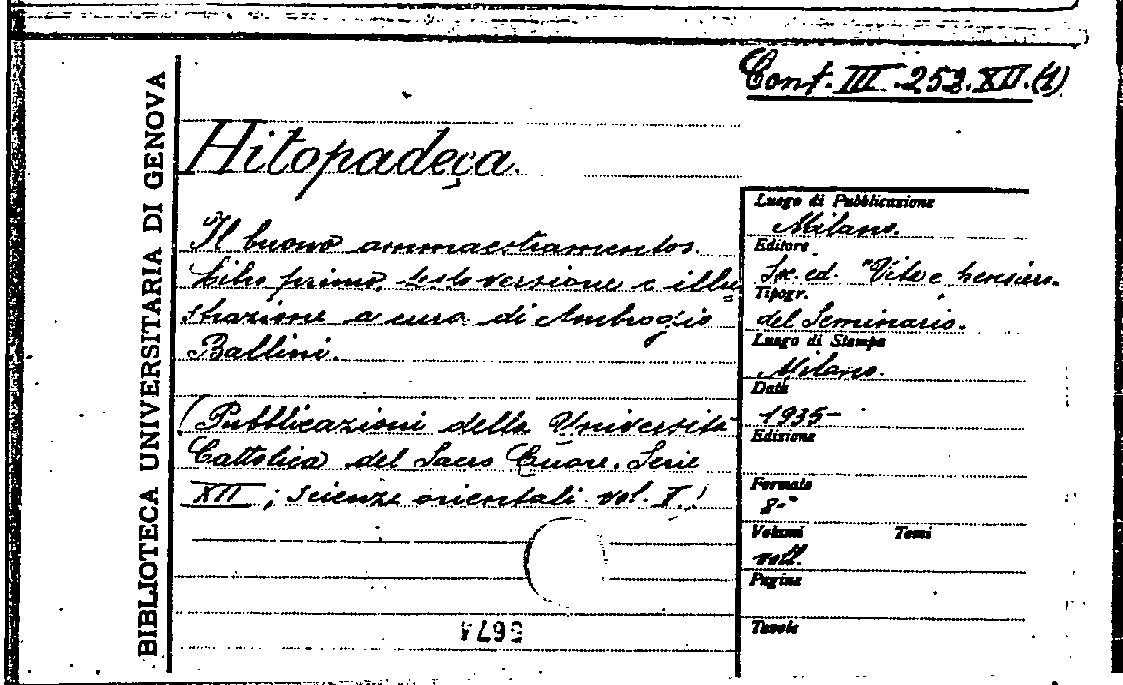 Cont. III. 252. XII. (1)
BIBLIOTECA UNIVERSITARIA DI GENOVA
Hitopadeça.
Il buono ammaestramento.
Libro primo, testo versione e illu
strazione a cura di Ambrogio
Ballini.
(Pubblicazioni della Università
Cattolica del Sacro Cuore. Serie
XII; scienze orientali vol. I.)
Luogo di Pubblicazione
Milano.
Editore
Soc. ed. "Vita e pensiero.
Tipogr.
del Seminario.
Luogo di Stampa
Milano.
Data
1935-
Edizione
Formato
8°
Volumi Tomi
voll.
Pagine
Tavole